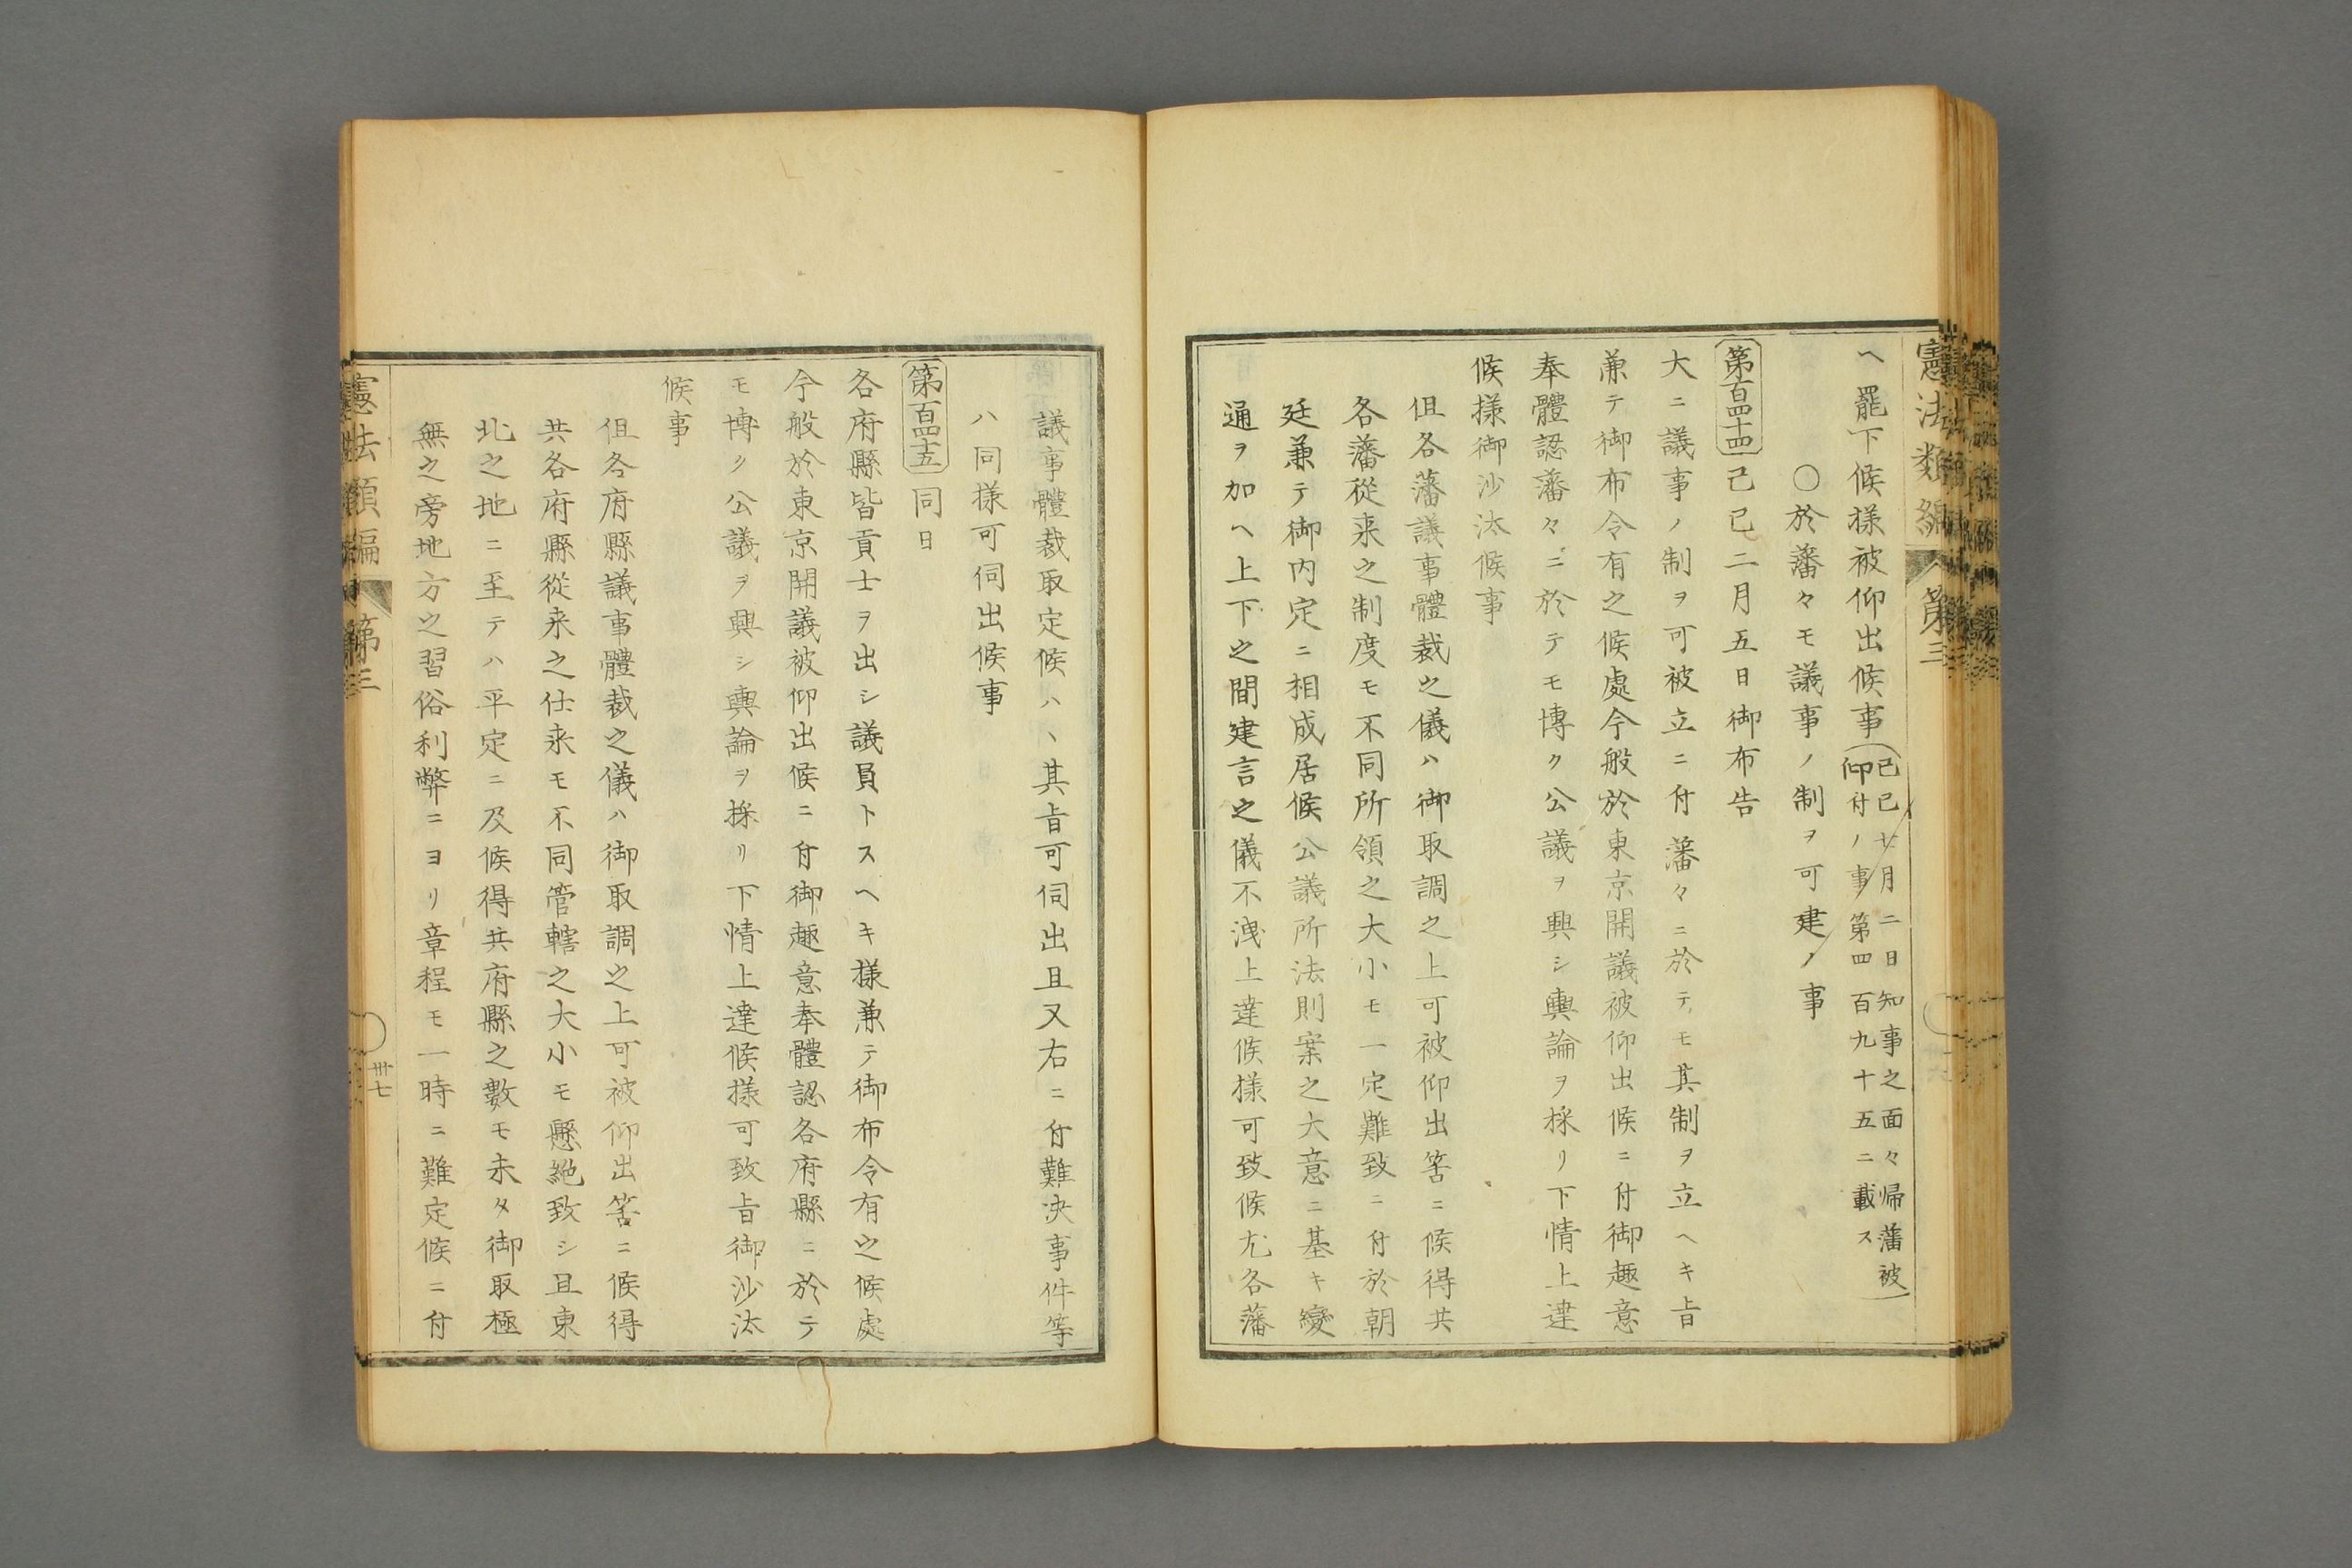 憲法類編 第三
ヘ罷下候様被仰出候事
己巳十月二日知事之面々帰藩被
仰付ノ事第四百九十五ニ載ス
○於藩々モ議事ノ制ヲ可建ノ事
第百四十四 己巳二月五日御布告
大ニ議事ノ制ヲ可被立ニ付藩々ニ於テモ其制ヲ立ヘキ旨
兼テ御布令有之候處今般於東京開議被仰出候ニ付御趣意
奉體認藩々ニ於テモ博ク公議ヲ興シ輿論ヲ採リ下情上達
候様御沙汰候事
但各藩議事體裁之儀ハ御取調之上可被仰出筈ニ候得共
各藩從来之制度モ不同所領之大小モ一定難致ニ付於朝
廷兼テ御内定ニ相成居候公議所法則案之大意ニ基キ變
通ヲ加ヘ上下之間建言之儀不洩上達候様可致候尤各藩
議事體裁取定候ハヽ其旨可伺出且又右ニ付難決事件等
ハ同様可伺出候事
第百四十五 同日
各府縣皆貢士ヲ出シ議員トスヘキ様兼テ御布令有之候處
今般於東京開議被仰出候ニ付御趣意奉體認各府縣ニ於テ
モ博ク公議ヲ興シ輿論ヲ採リ下情上達候様可致旨御沙汰
候事
但各府縣議事體裁之儀ハ御取調之上可被仰出筈ニ候得
共各府縣從来之仕来モ不同管轄之大小モ懸絶致シ且東
北之地ニ至テハ平定ニ及候得共府縣之數モ未タ御取極
無之旁地方之習俗利弊ニヨリ章程モ一時ニ難定候ニ付
憲法類編 第三 卅七